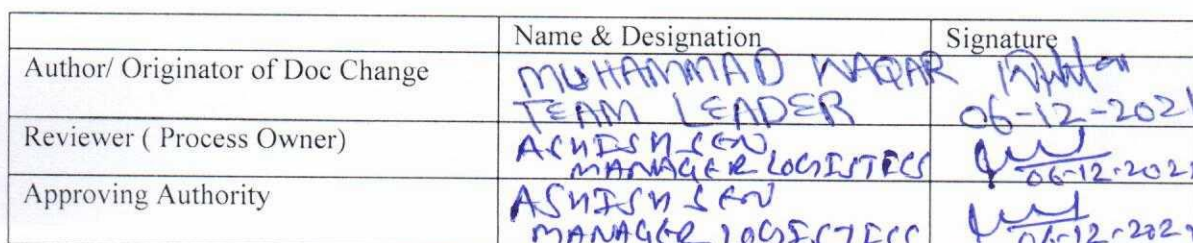 Name & Designation Signature
Author/ Originator of Doc Change MUHAMMAD WAQAR
TEAM LEADER 06-12-2021
Reviewer ( Process Owner) ASHISH SEN
MANAGER LOGISTICS 06-12-202
Approving Authority ASHISH SEN
MANAGER LOGISTICS 06-12-202